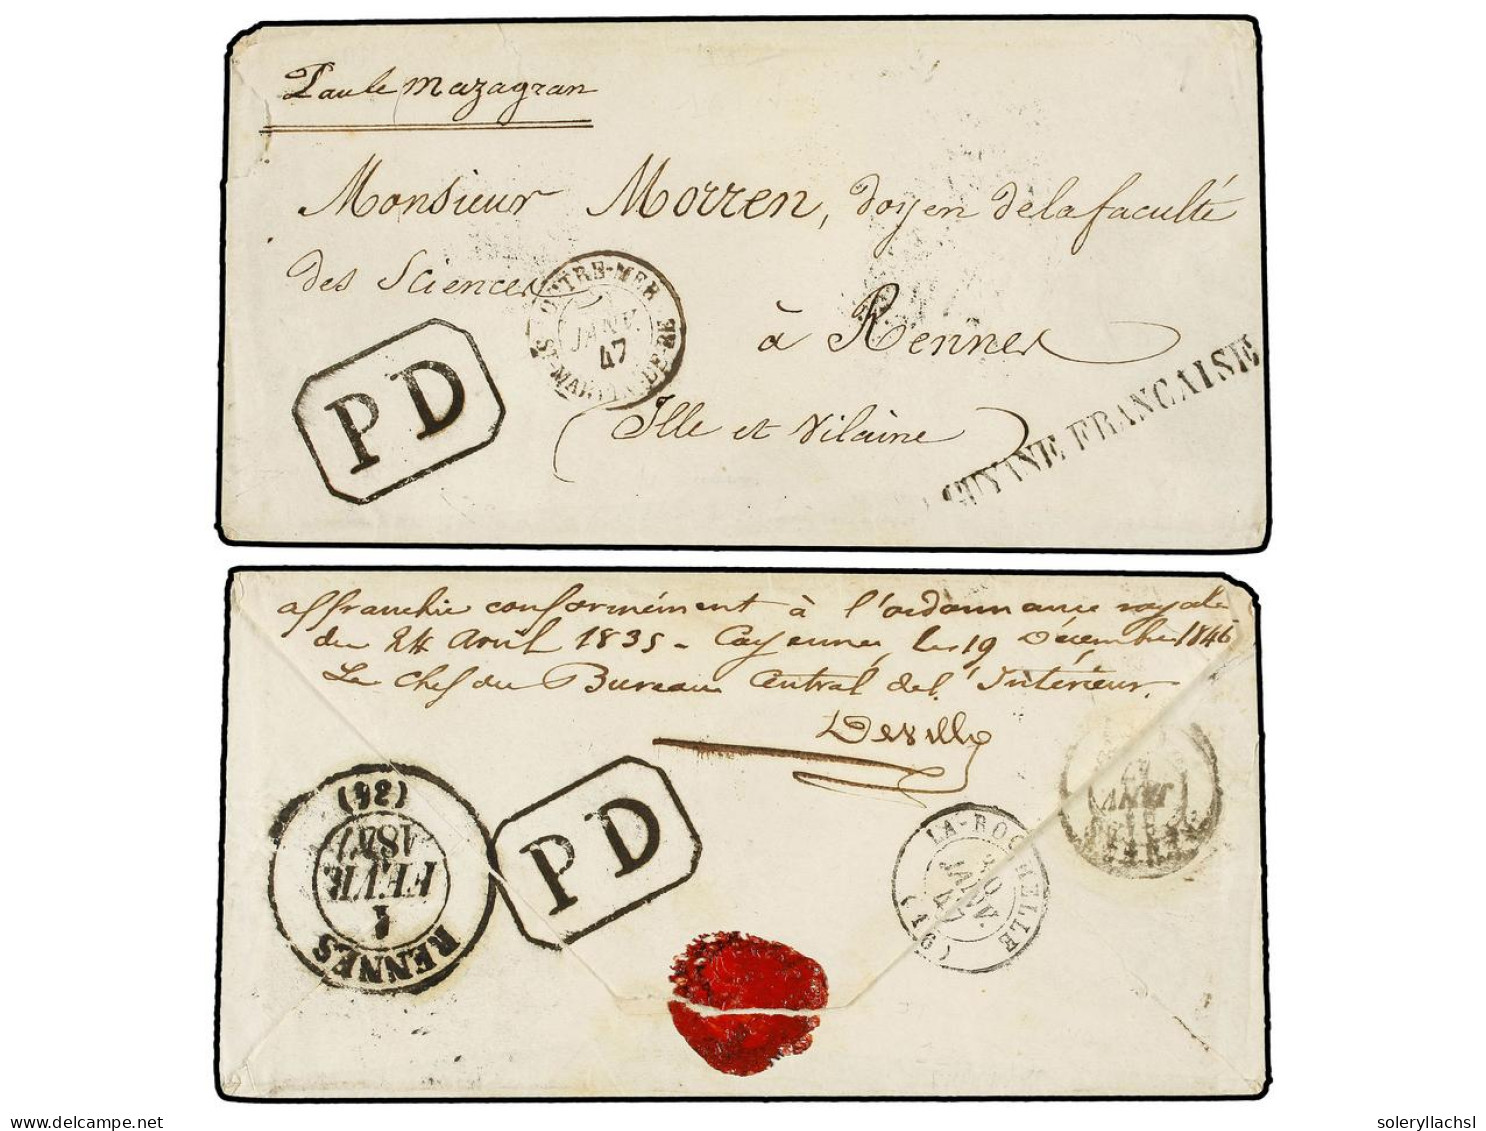 Par le Mazagran
Monsieur Morren, doyen de la faculté
des Sciences
OUTRE-MER
JANV.
47
ST-MARTIN-DE-RE
à Rennes
PD
Ille et Vilaine
GUYANE FRANCAISE
affranchie conformément à l'ordonnance royale
du 24 Avril 1835 - Cayenne, le 19 Décembre 1846
Le Chef du Bureau Central de l'Intérieur.
Devilly
RENNES
1
FEVR
1847
(34)
PD
LA-ROCHELLE
30
JANV.
47
(16)
JANV
47
www.delcampe.net
soleryllachsl